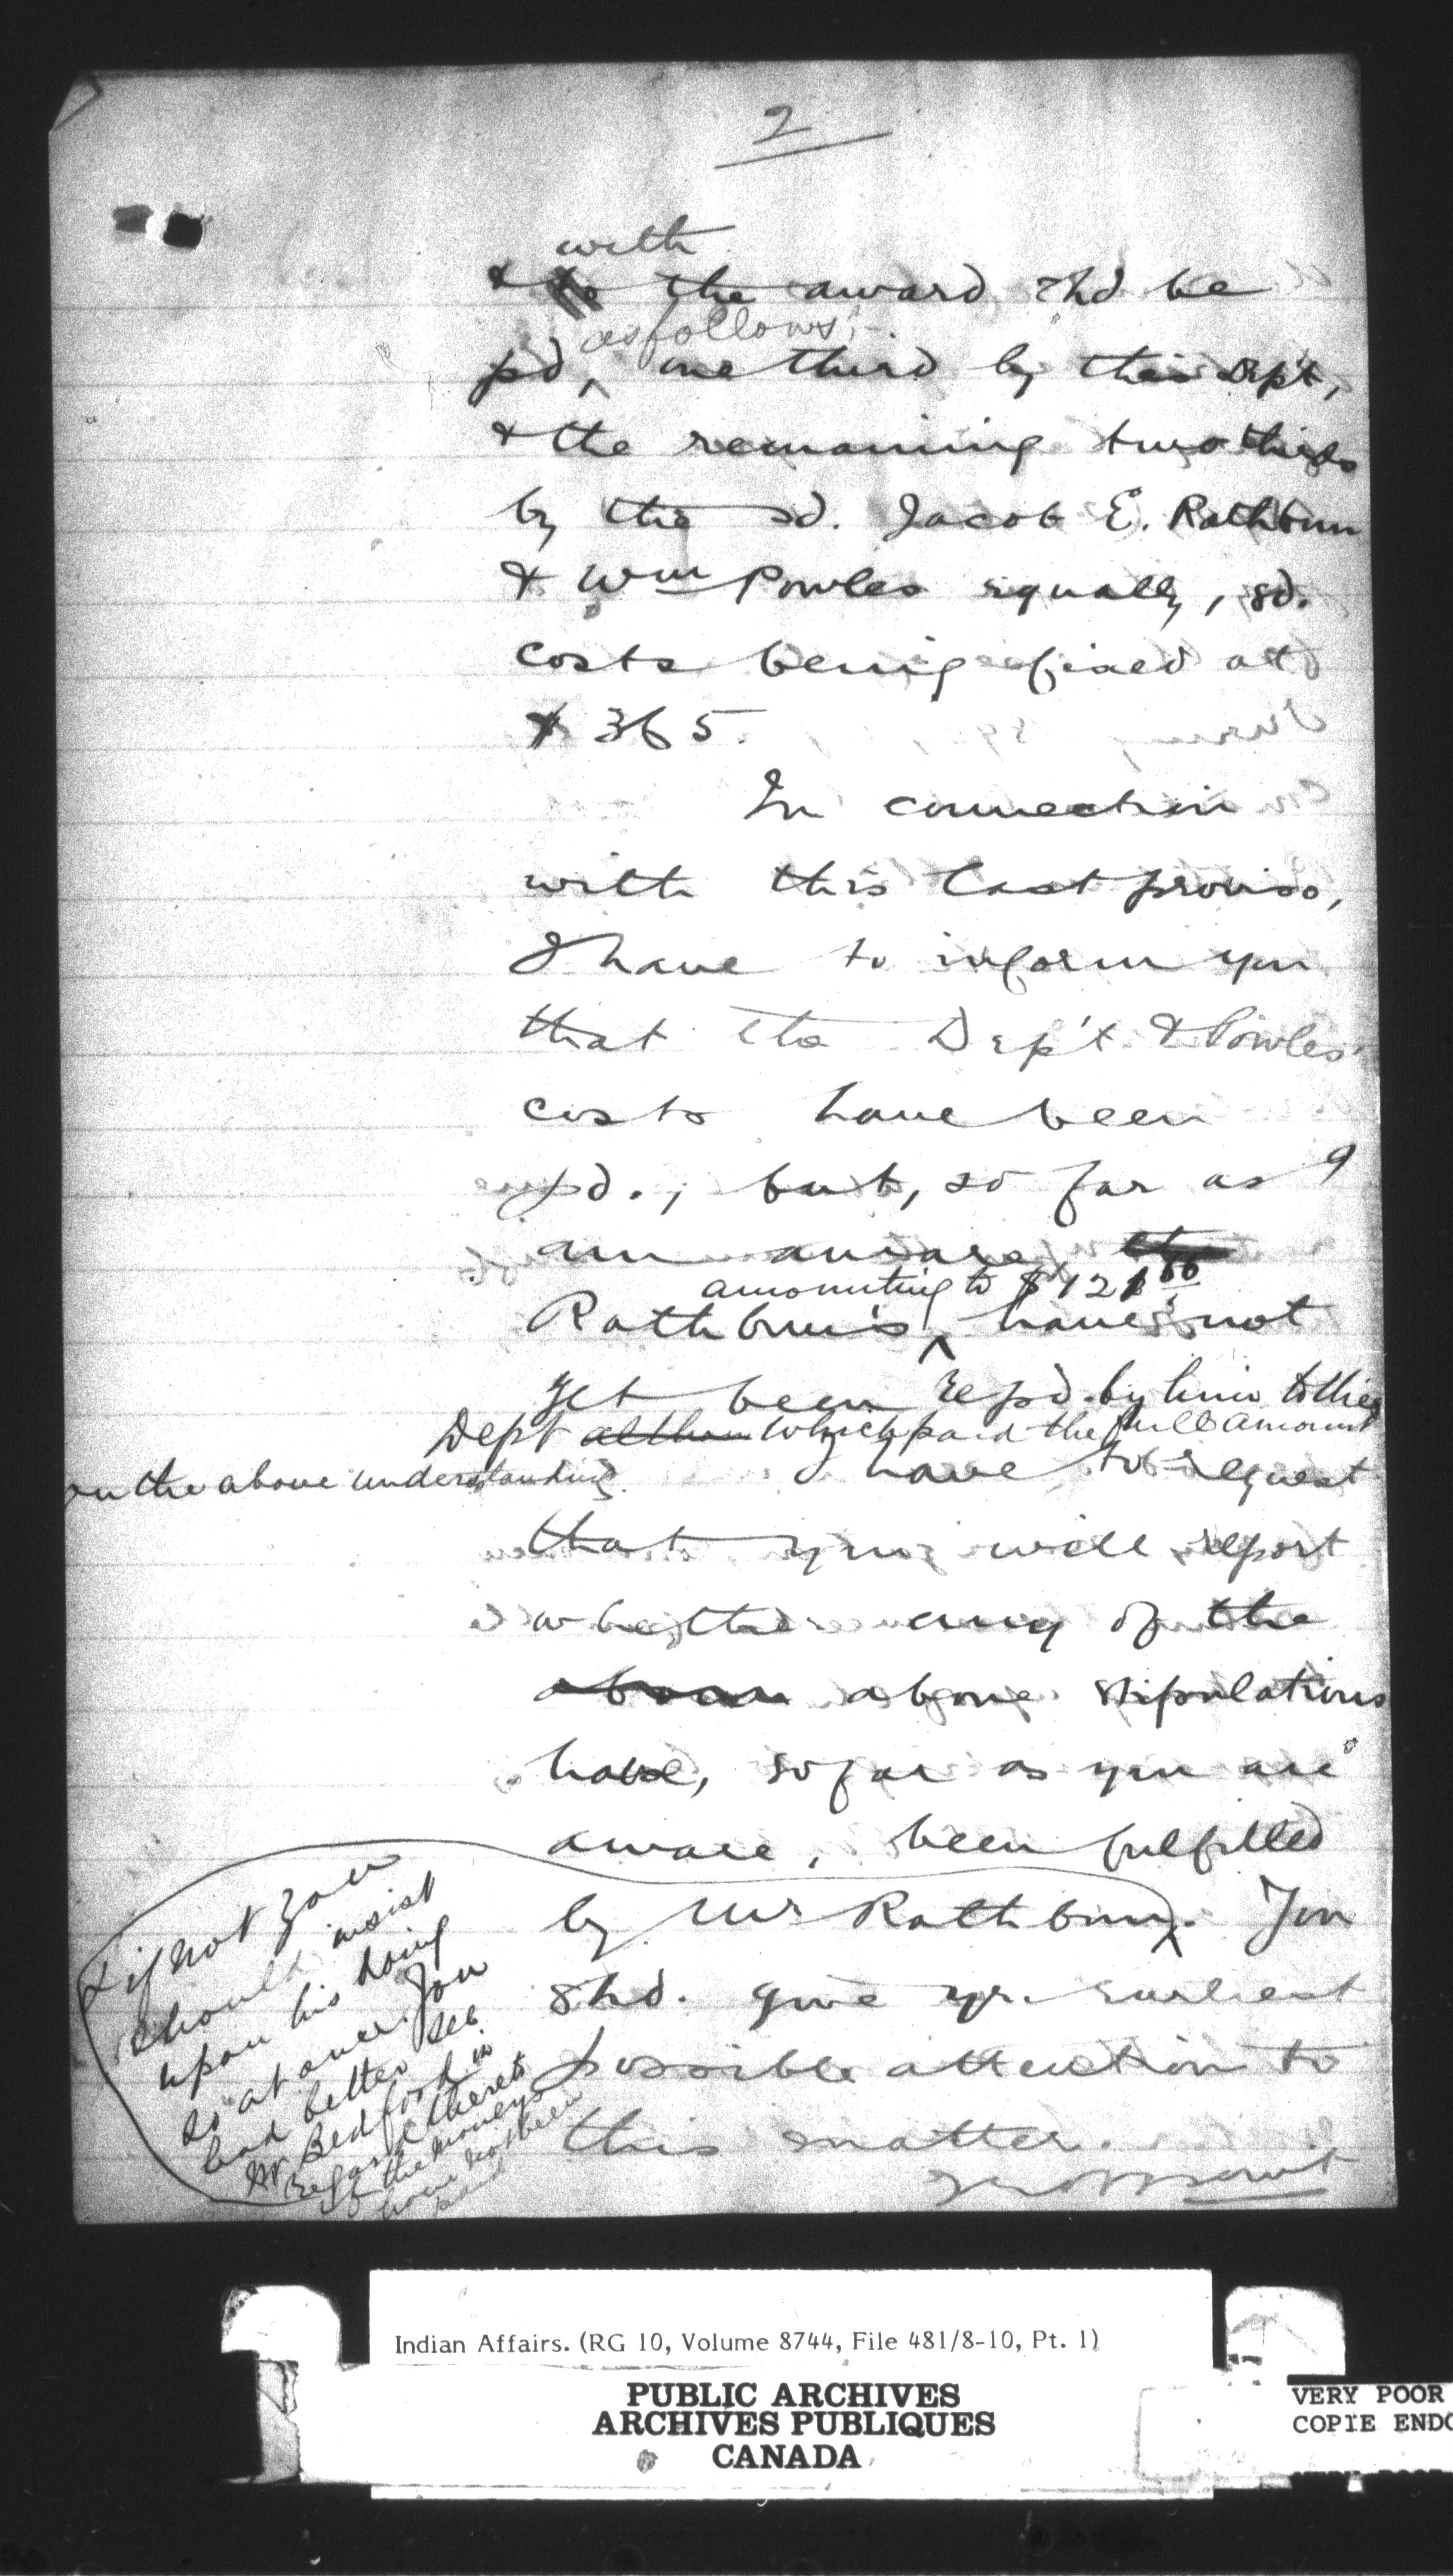 2
with
& the award shd be
as follows:-
pd, one third by this Dep't,
& the remaining two thirds
by the sd. Jacob E. Rathbun
& Wm Powles equally, sd.
costs being fixed at
$365.
In connection
with this last proviso,
I have to inform you
that the Dep't & Powles'
costs have been
pd.; but, so far as I
am aware
amounting to $121 66
Rathbun's, have not
yet been repd. by him to this
Dept which paid the full amount
on the above understanding. I have to request
that you will report
whether any of the
above stipulations
have, so far as you are
aware, been fulfilled
by Mr Rathbun. You
& if not you
should insist
upon his doing
so at once. You
had better see
Mr Bedford in
regard thereto
if the moneys
have not been
paid
shd. give yr. earliest
possible attention to
this matter.
Indian Affairs. (RG 10, Volume 8744, File 481/8-10, Pt. 1)
PUBLIC ARCHIVES
ARCHIVES PUBLIQUES
CANADA
VERY POOR
COPIE ENDO